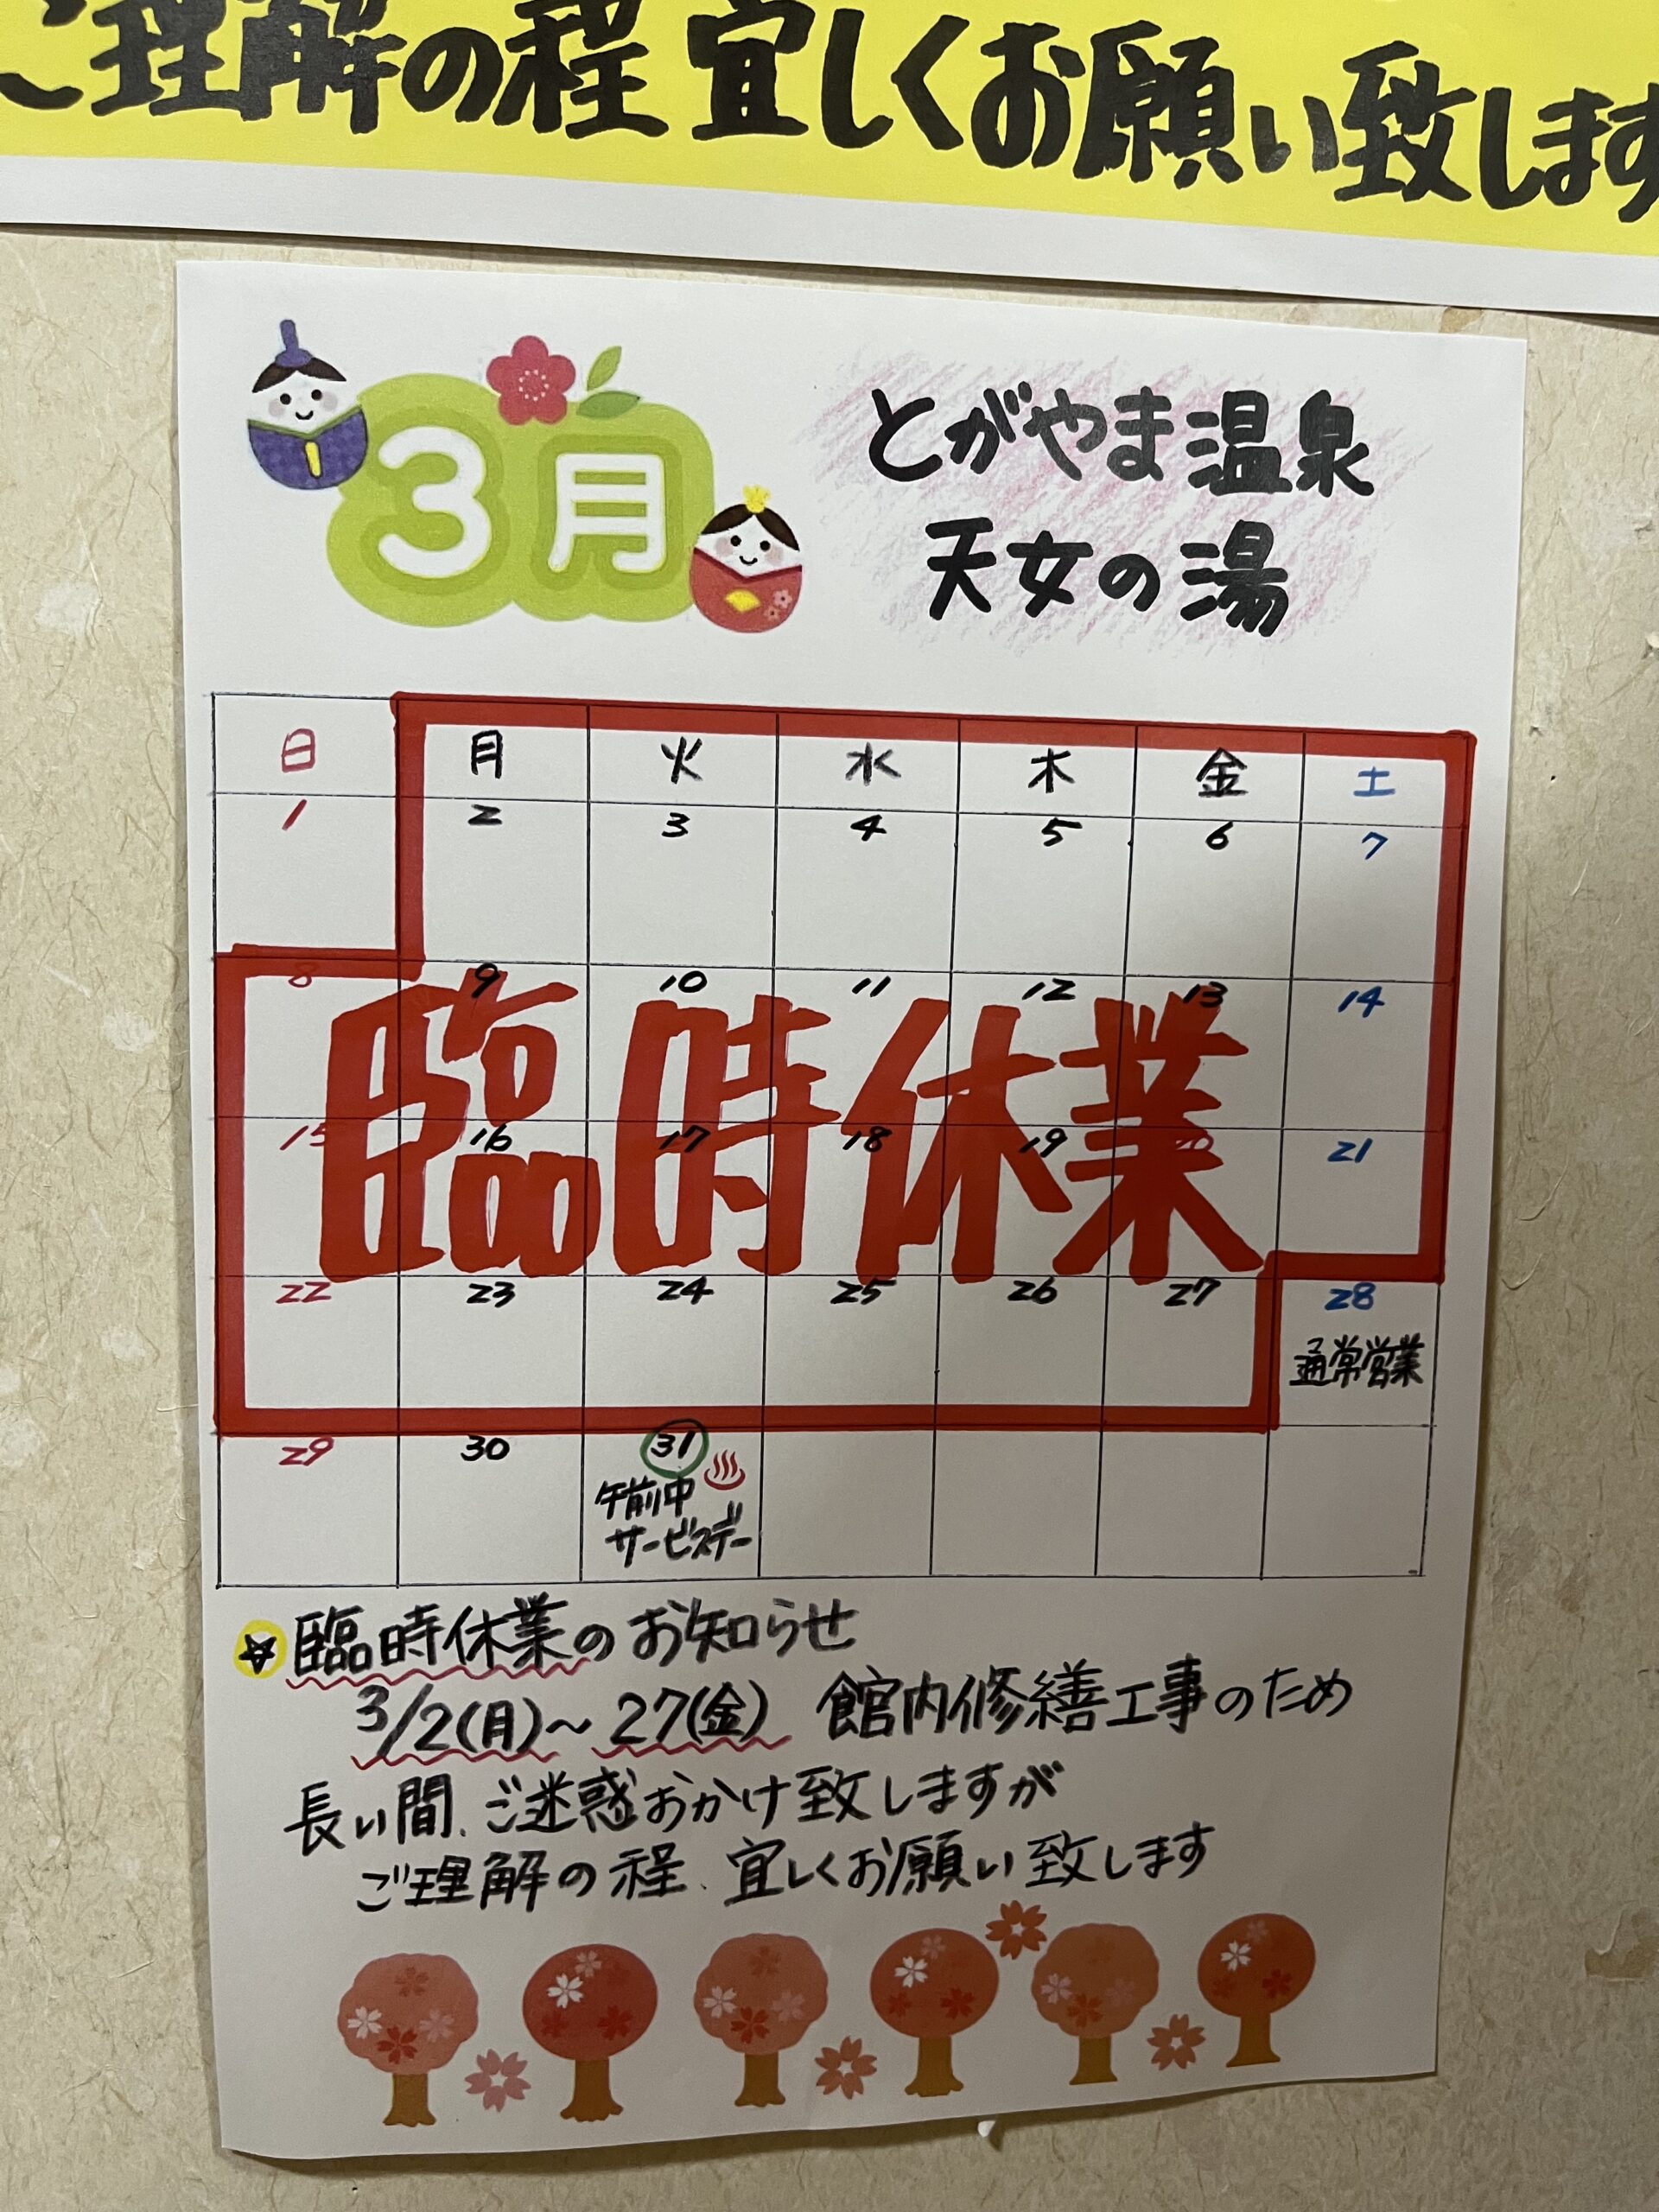 ご理解の程 宜しくお願い致します
3月
とがやま温泉
天女の湯
日 月 火 水 木 金 土
1 2 3 4 5 6 7
8 9 10 11 12 13 14
臨時休業
15 16 17 18 19 20 21
22 23 24 25 26 27 28
通常営業
29 30 31
午前中
サービスデー
臨時休業のお知らせ
3/2(月)～27(金) 館内修繕工事のため
長い間、ご迷惑おかけ致しますが
ご理解の程、宜しくお願い致します